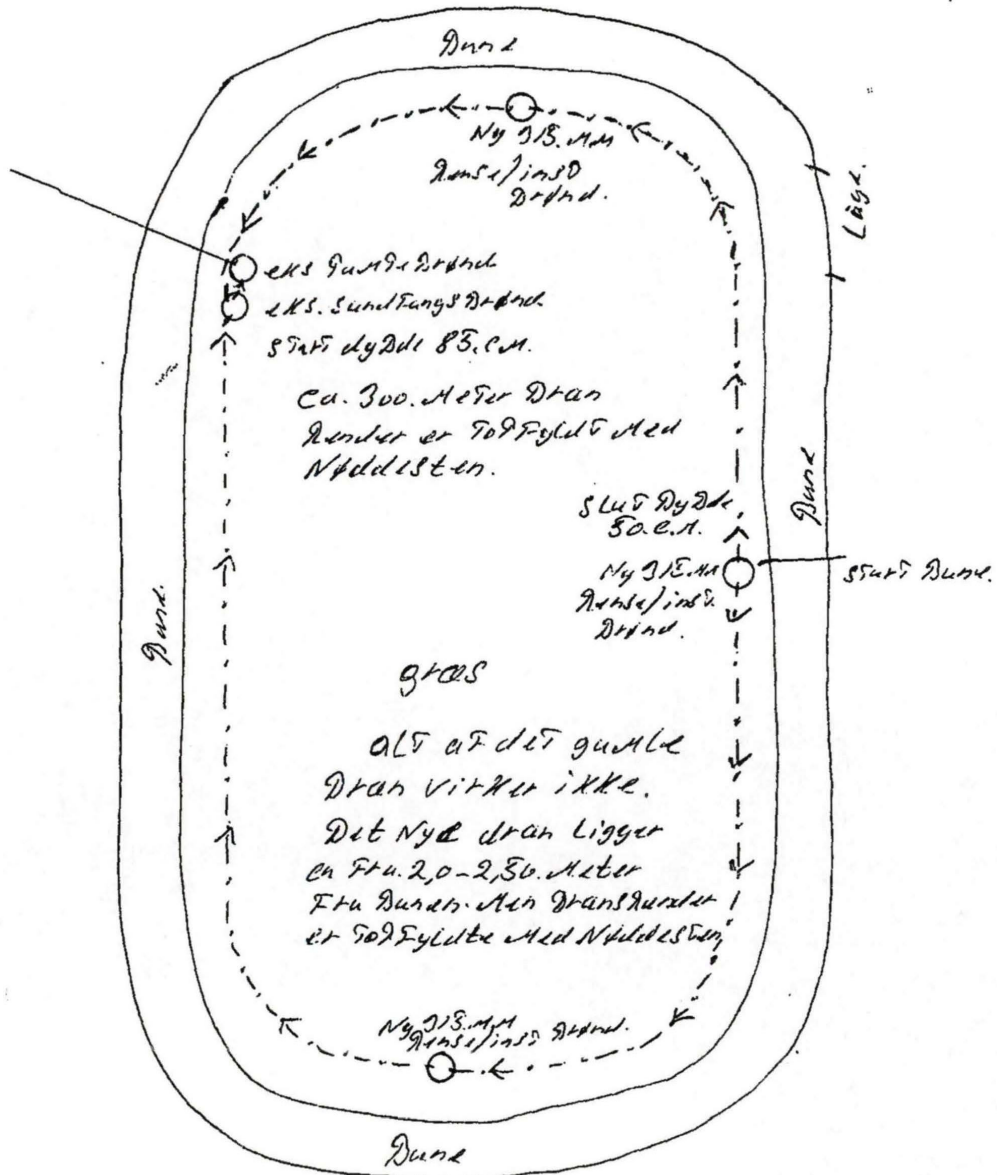 Bane
Ny 315.MM
Rense/insp
Brønd.
Låge.
eks Samlebrønd
eks. Sandfangsbrønd.
start dybde 85.cM.
Ca. 300. Meter Dræn
Render er Topfyldt Med
Nøddesten.
slut Dybde
50.c.M.
Ny 315.MM
Rense/insp.
Brønd.
start Bane.
Bane
Bane.
græs
alt af det gamle
Dræn virker ikke.
Det Nye dræn Ligger
ca Fra. 2,0-2,50. Meter
Fra Banen. Men Drænrender
er Topfyldte Med Nøddesten
Ny 315.MM
Rense/insp Brønd.
Bane